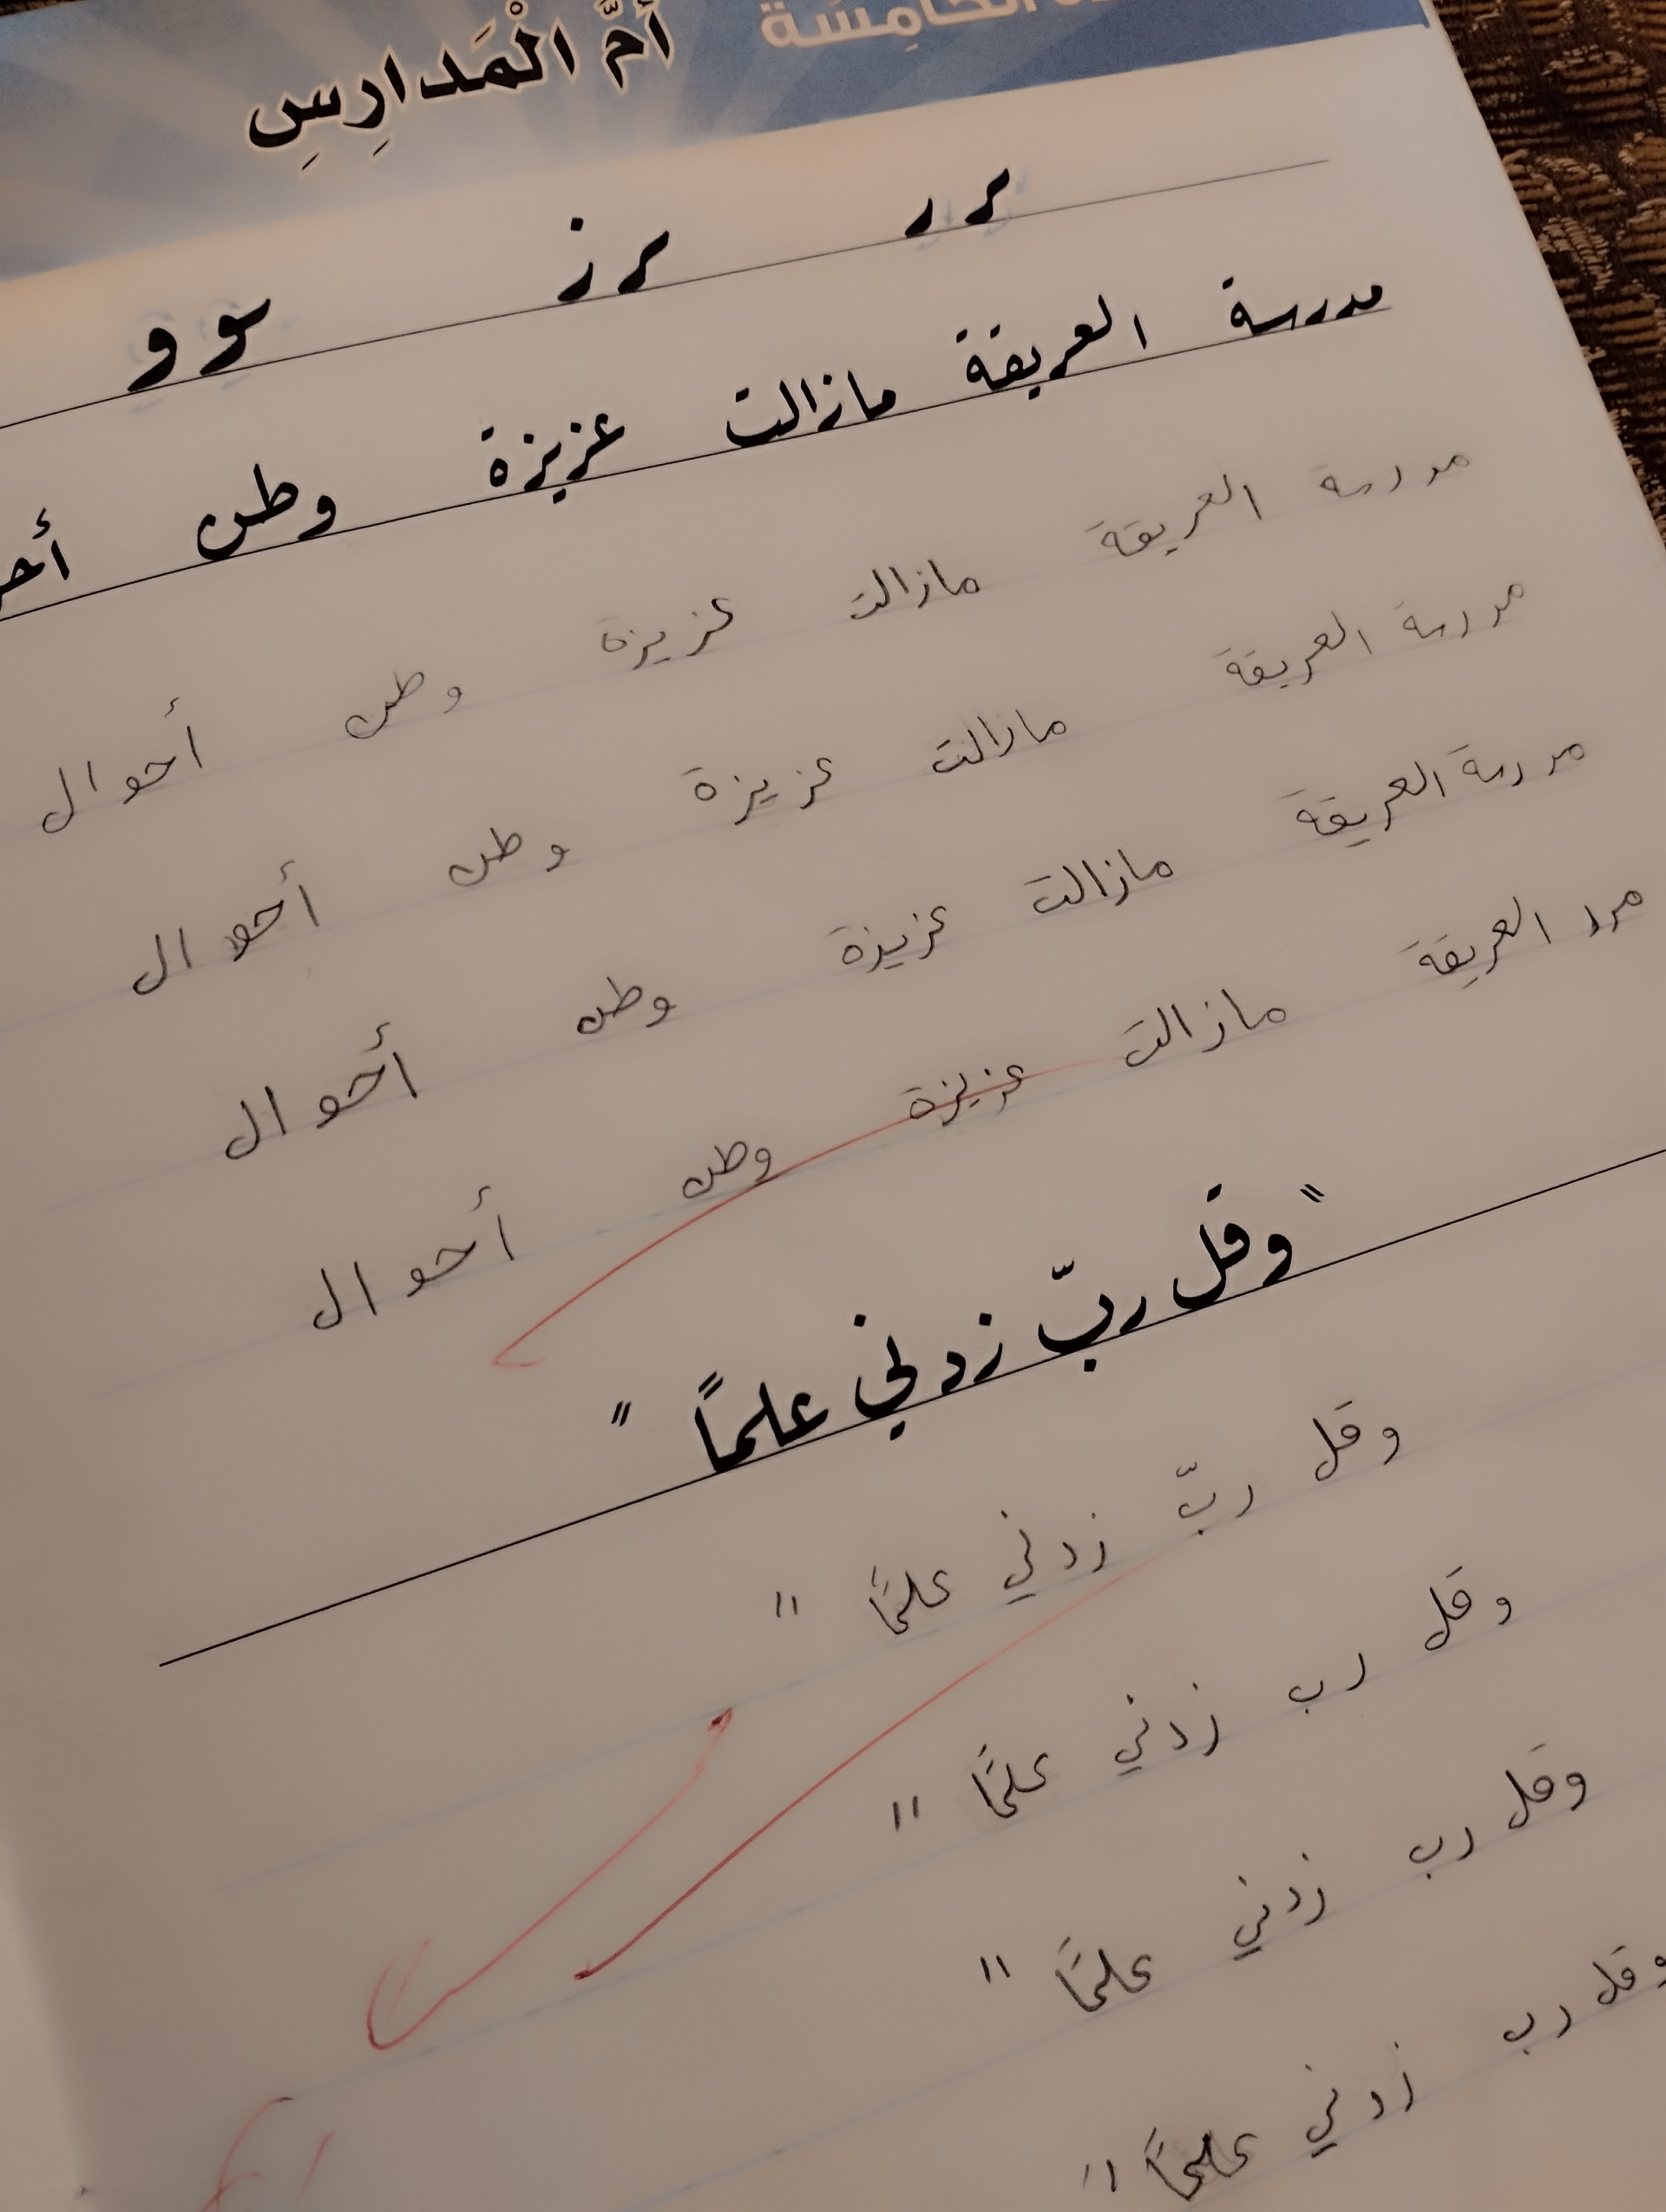 الخامسة
أُمُّ الْمَدارِسِ
ـر ر ـر ز ـو و
مدرسة العريقة مازالت عزيزة وطن
مدرسة العريقة مازالت عزيزة وطن أحوال
مدرسة العريقة مازالت عزيزة وطن أحوال
مدرسة العريقة مازالت عزيزة وطن أحوال
العريقة مازالت عزيزة وطن أحوال
" وقل ربّ زدني علماً "
وقل ربّ زدني علماً "
وقل رب زدني علماً "
وقل رب زدني علماً "
وقل رب زدني علماً "